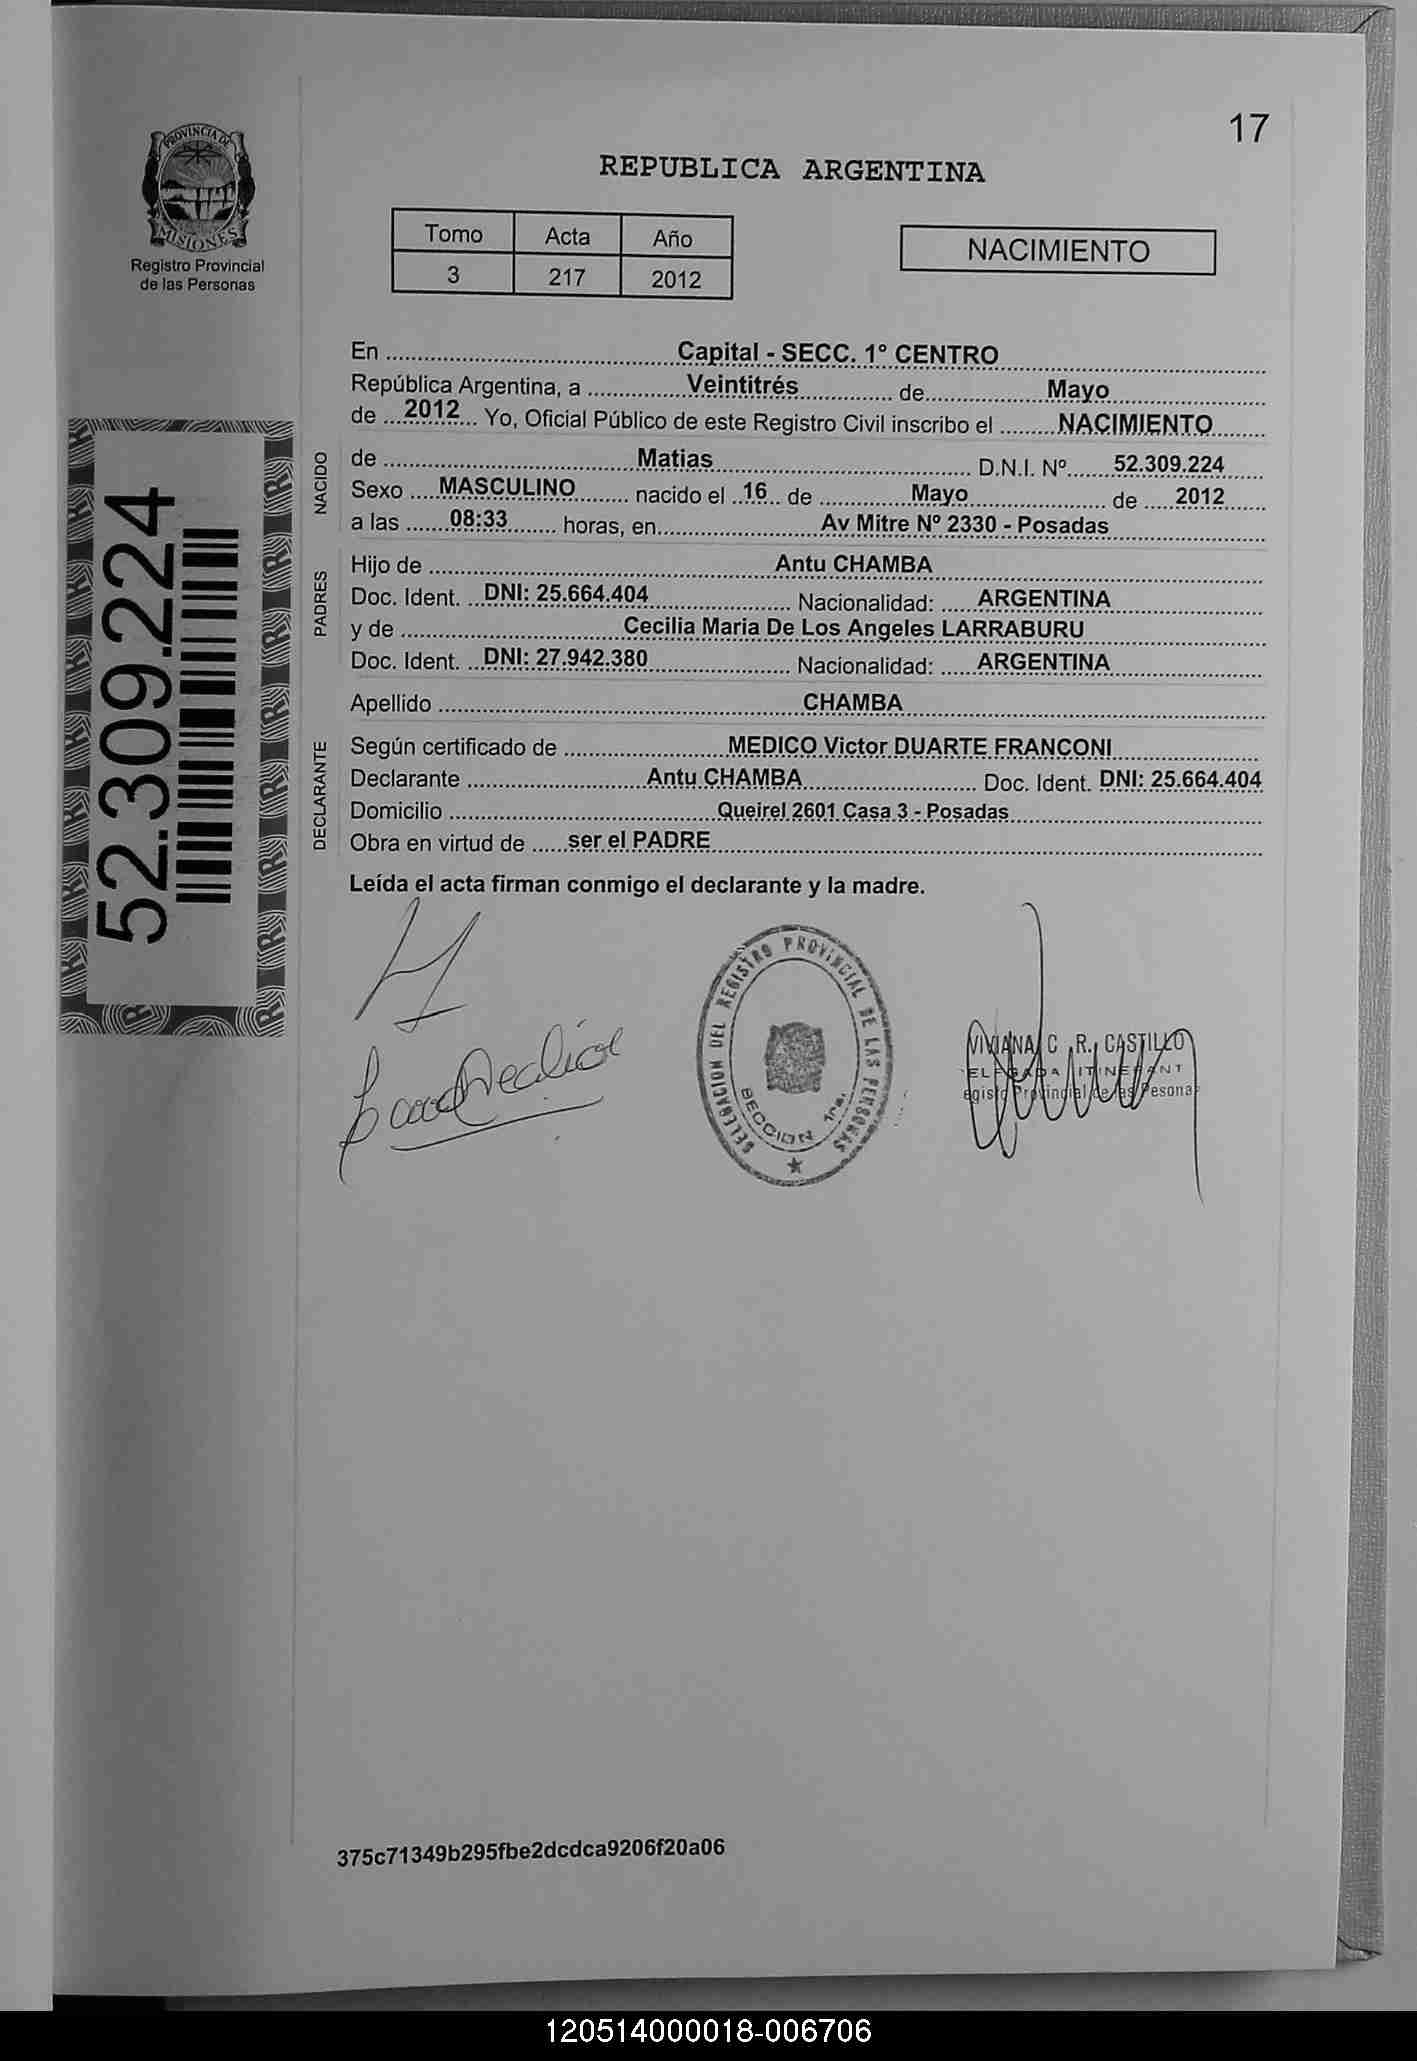 17
PROVINCIA DE
MISIONES
Registro Provincial
de las Personas
REPUBLICA ARGENTINA
Tomo Acta Año
3 217 2012
NACIMIENTO
En Capital - SECC. 1° CENTRO
República Argentina, a Veintitrés de Mayo
de 2012 Yo, Oficial Público de este Registro Civil inscribo el NACIMIENTO
NACIDO
de Matias D.N.I. Nº 52.309.224
Sexo MASCULINO nacido el 16 de Mayo de 2012
a las 08:33 horas, en Av Mitre Nº 2330 - Posadas
PADRES
Hijo de Antu CHAMBA
Doc. Ident. DNI: 25.664.404 Nacionalidad: ARGENTINA
y de Cecilia Maria De Los Angeles LARRABURU
Doc. Ident. DNI: 27.942.380 Nacionalidad: ARGENTINA
Apellido CHAMBA
DECLARANTE
Según certificado de MEDICO Victor DUARTE FRANCONI
Declarante Antu CHAMBA Doc. Ident. DNI: 25.664.404
Domicilio Queirel 2601 Casa 3 - Posadas
Obra en virtud de ser el PADRE
Leída el acta firman conmigo el declarante y la madre.
52.309.224
DELEGACION DEL REGISTRO PROVINCIAL DE LAS PERSONAS
SECCION 1ra.
VIVIANA C. R. CASTILLO
ELEGADA ITINERANT
egistro Provincial de las Pesonas
375c71349b295fbe2dcdca9206f20a06
120514000018-006706